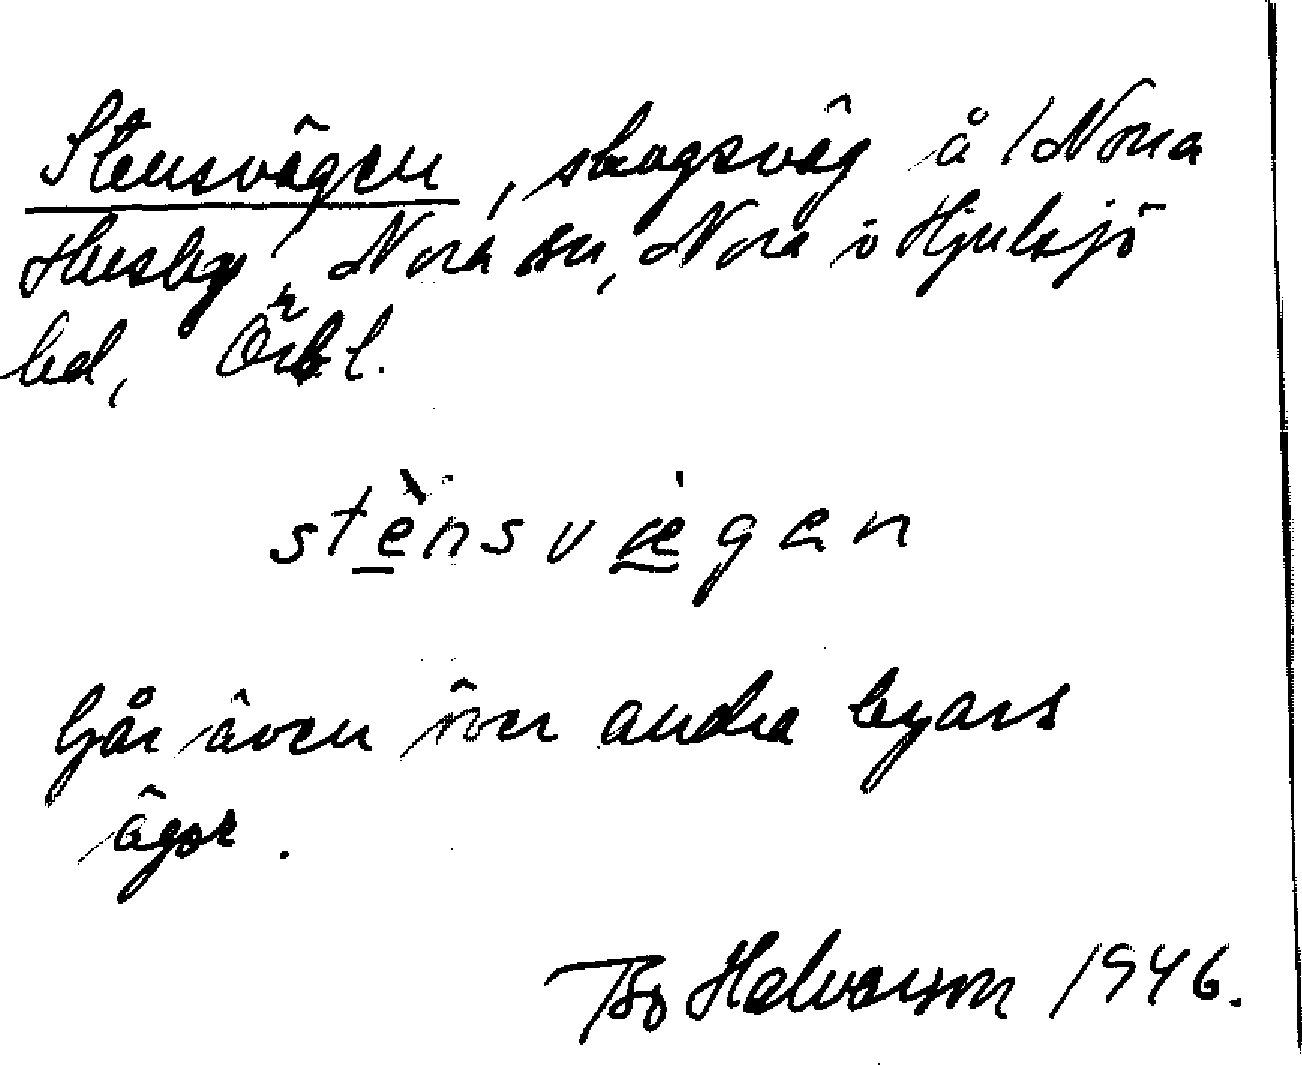 Stensvägen, skogsväg å / Norra
Husby, Nora sn, Nora o Hjulsjö
bd, Örbl.
stènsvægan
Går även över andra byars
ägor.
Halvarson 1946.